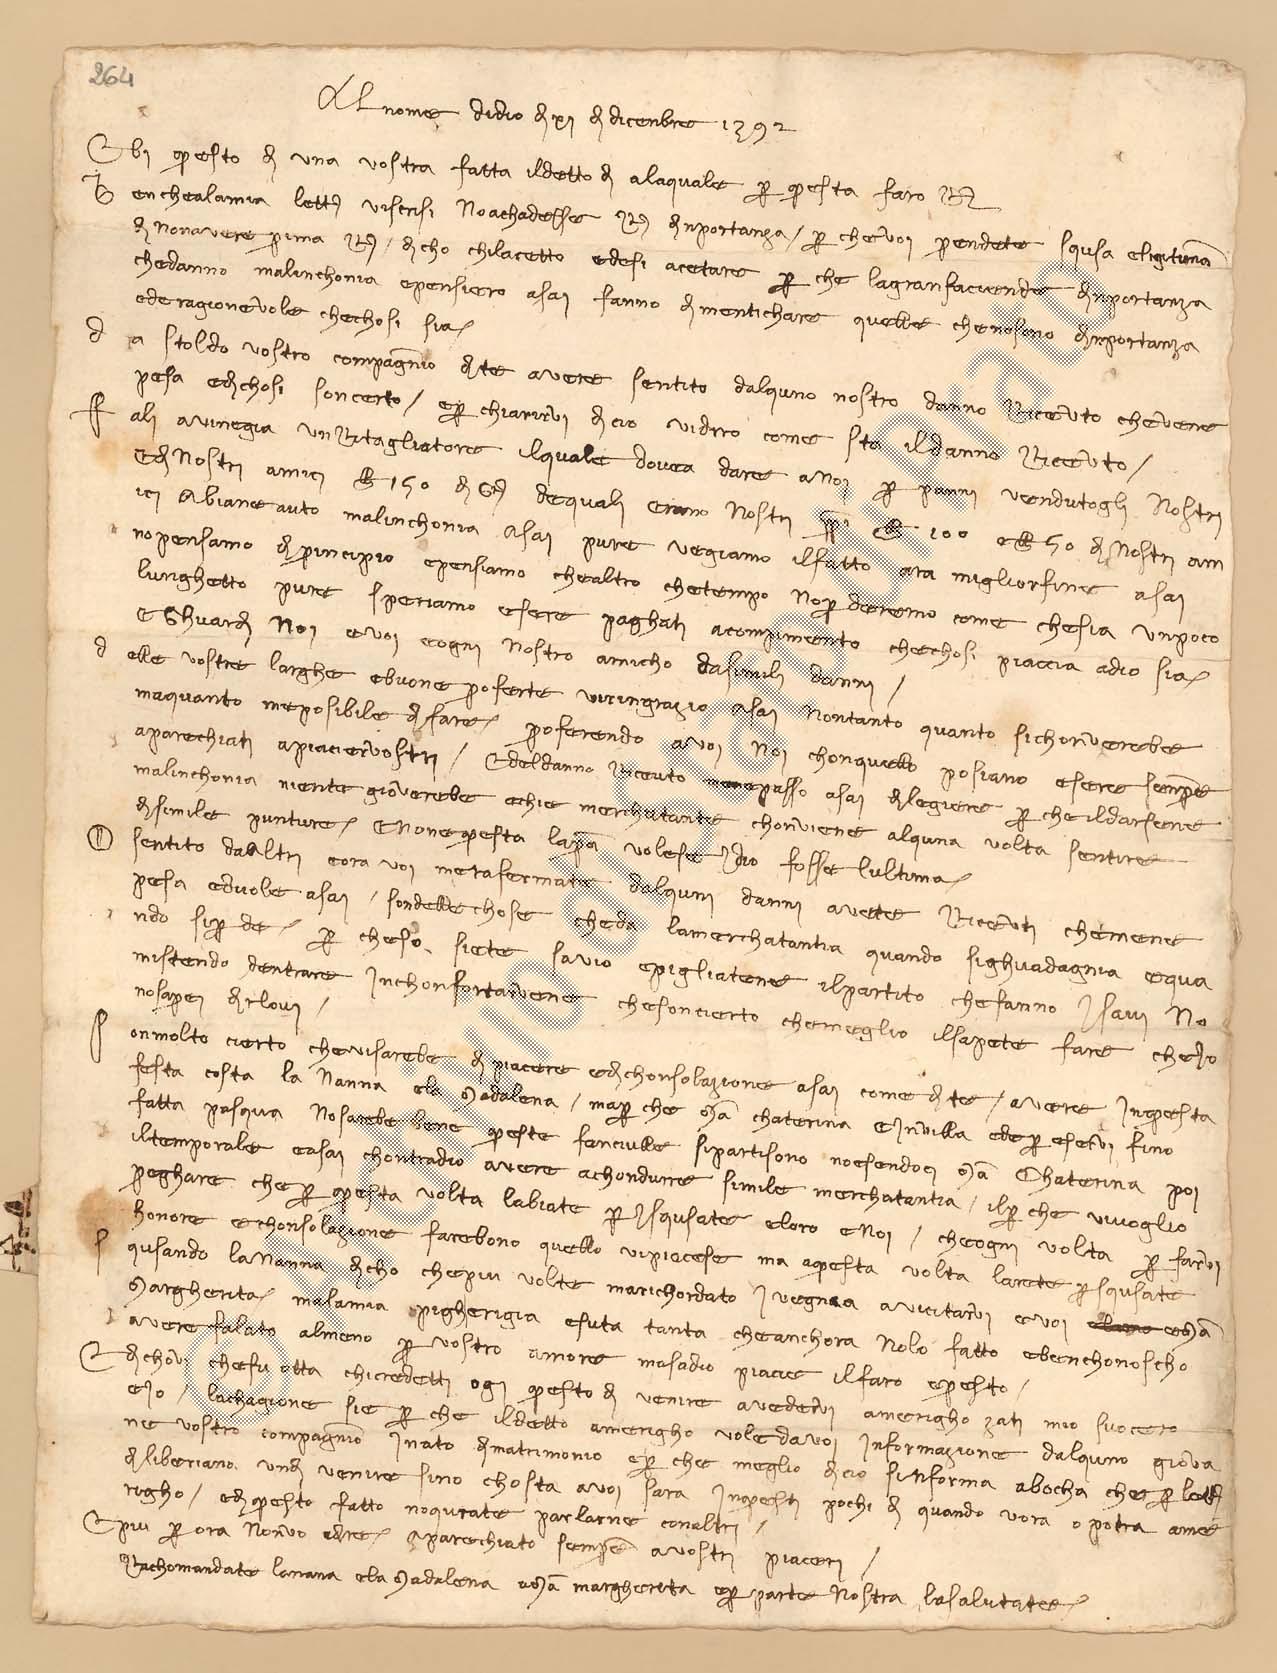 264
Al nome didio d xi d dicenbre 1392
Ebi questo d una vostra fatta ildetto d alaquale per questa faro R
Benchealamia lettera viscrisi Noachadesse R dinportanza / perchevoi prendete schusa eligituma
di nonavere prima R / dicho chilacetto edesi acetare per che lagranfaciende dinportanza
chedanno malinchonia epensiero asai fanno dimentichare quelle chenosono dinportanza
ede ragionevole chechosi sia /
da stoldo vostro compagnio dite avere sentito dalquno nostro danno Ricevuto chevene
pesa edichosi soncerto / eper chiarirvi dicio vidiro come sta ildanno Ricevuto /
Fali avinegia unRitagliatore ilquale dovea dare anoi per panni vendutogli Nostri
Edinostri amici 150 di dequali erano Nostri propri 100 e 50 di Nostri am
ici Abianeauto malinchonia Asai pure vegiamo ilfatto ara migliorfine asai
nopensamo diprincipio epensiamo chealtro chetempo Noperderemo come chesia unpoco
lunghetto pure speriamo esere paghati acompimento chechosi piaccia adio sia /
EGhuardi Noi evoi eogni nostro amicho dasimili danni /
delle vostre larghe ebuone proferte viringrazio asai Nontanto quanto sichonverebe
maquanto meposibile difare / proferendo avoi Noi chonquello posiano esere sempre
aparechiati apiacervostri / Edeldanno Riceuto mene passo asai dilegiere per cheildarsene
malinchonia niente gioverebe echie merchatante chonviene alquna volta sentire
disimile punture / ENonequesta laprima volese Idio fosse lultima /
O sentito daaltri eora voi metafermate dalquni danni avete Ricevuti chemene
pesa eduole asai / sondelle chose cheda lamerchatantia quando sighuadagnia equa
ndo siperde / per cheso siete savio epigliatene ilpartito chefanno Isavi No
mistendo dentrare Inchonfortarvene chesoncierto chemeglio ilsapete fare cheIo
nosaperei dirlovi /
Son molto cierto chevisarebe di piacere edichonsolazione asai come dite / avere Inquesta
festa costa la Nanna ela Madalena / maper che Mona chaterina eInvilla edepereservi fino
fatta pasqua Nosarebe bene queste fanciulle sipartisono noesendoci Mona Chaterina poi
iltemporale easai chontradio avere achondure simile merchatantia / ilper che vivoglio
preghare cheper questa volta labiate per Ischusate eloro eNoi / cheogni volta per farvi
honore echonsolazione farebono quello vipiacese ma aquesta volta larete perschusate
Schusando laNanna dicho chepiu volte marichordato Ivegnia avicitarvi evoi eMona
Margherita / malamia pigherigia esuta tanta cheanchora Nolo fatto ebenchonoscho
avere falato almeno per vostro amore masadio piacie ilfaro epresto /
Edichovi chefu otta chicredetti ogi questo di venire avedervi amerigho zati mio suocero
eIo / lachagione sie per che ildetto amerigho voledavoi Informazione dalquno giova
ne vostro compagnio Inato dimatrimonio eper che meglio dicio sinforma abocha cheper lettera
diliberiano undi venire sino chosta avoi sara Inquesti pochi di quando vora opotra ame
righo / edi questo fatto noqurate parlarne conaltri /
Epiu per ora Nonvo dire / aparechiato sempre avostri piaceri /
Rachomandate lanana ela Madalena aMona margherita eper parte Nostra lasalutate /